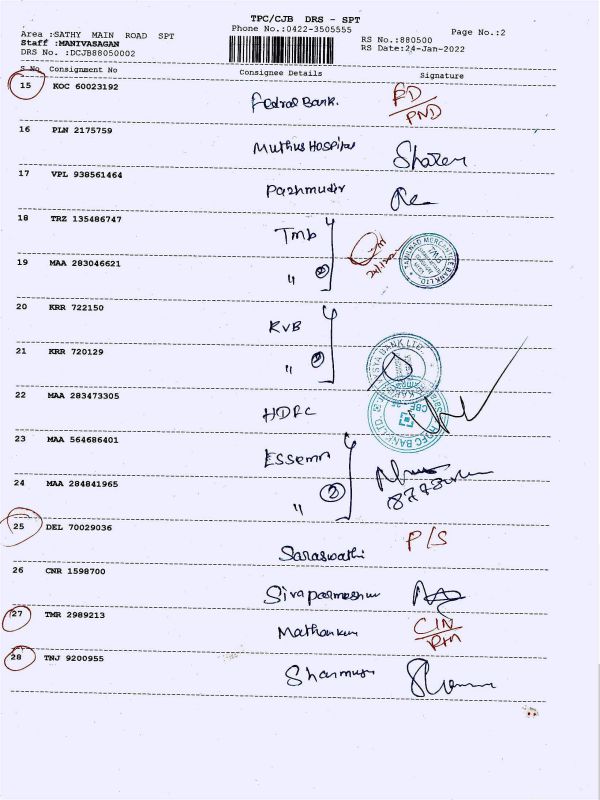 TPC/CJB DRS - SPT
Phone No.:0422-3505555
Page No.:2
Area :SATHY MAIN ROAD SPT
Staff :MANIVASAGAN
DRS No. :DCJB88050002
RS No.:880500
RS Date:24-Jan-2022
S No Consignment No Consignee Details Signature
15 KOC 60023192 Fedral Bank. FD
PND
16 PLN 2175759 Muthus Hospital
17 VPL 938561464 Pazhmudir
18 TRZ 135486747 Tmb
19 MAA 283046621 " 2
20 KRR 722150 KVB
21 KRR 720129 " 2
22 MAA 283473305 HDFC
23 MAA 564686401 Essemm
24 MAA 284841965 " 2
25 DEL 70029036 Saraswathi P/S
26 CNR 1598700
27 TMR 2989213 CIN
28 TNJ 9200955